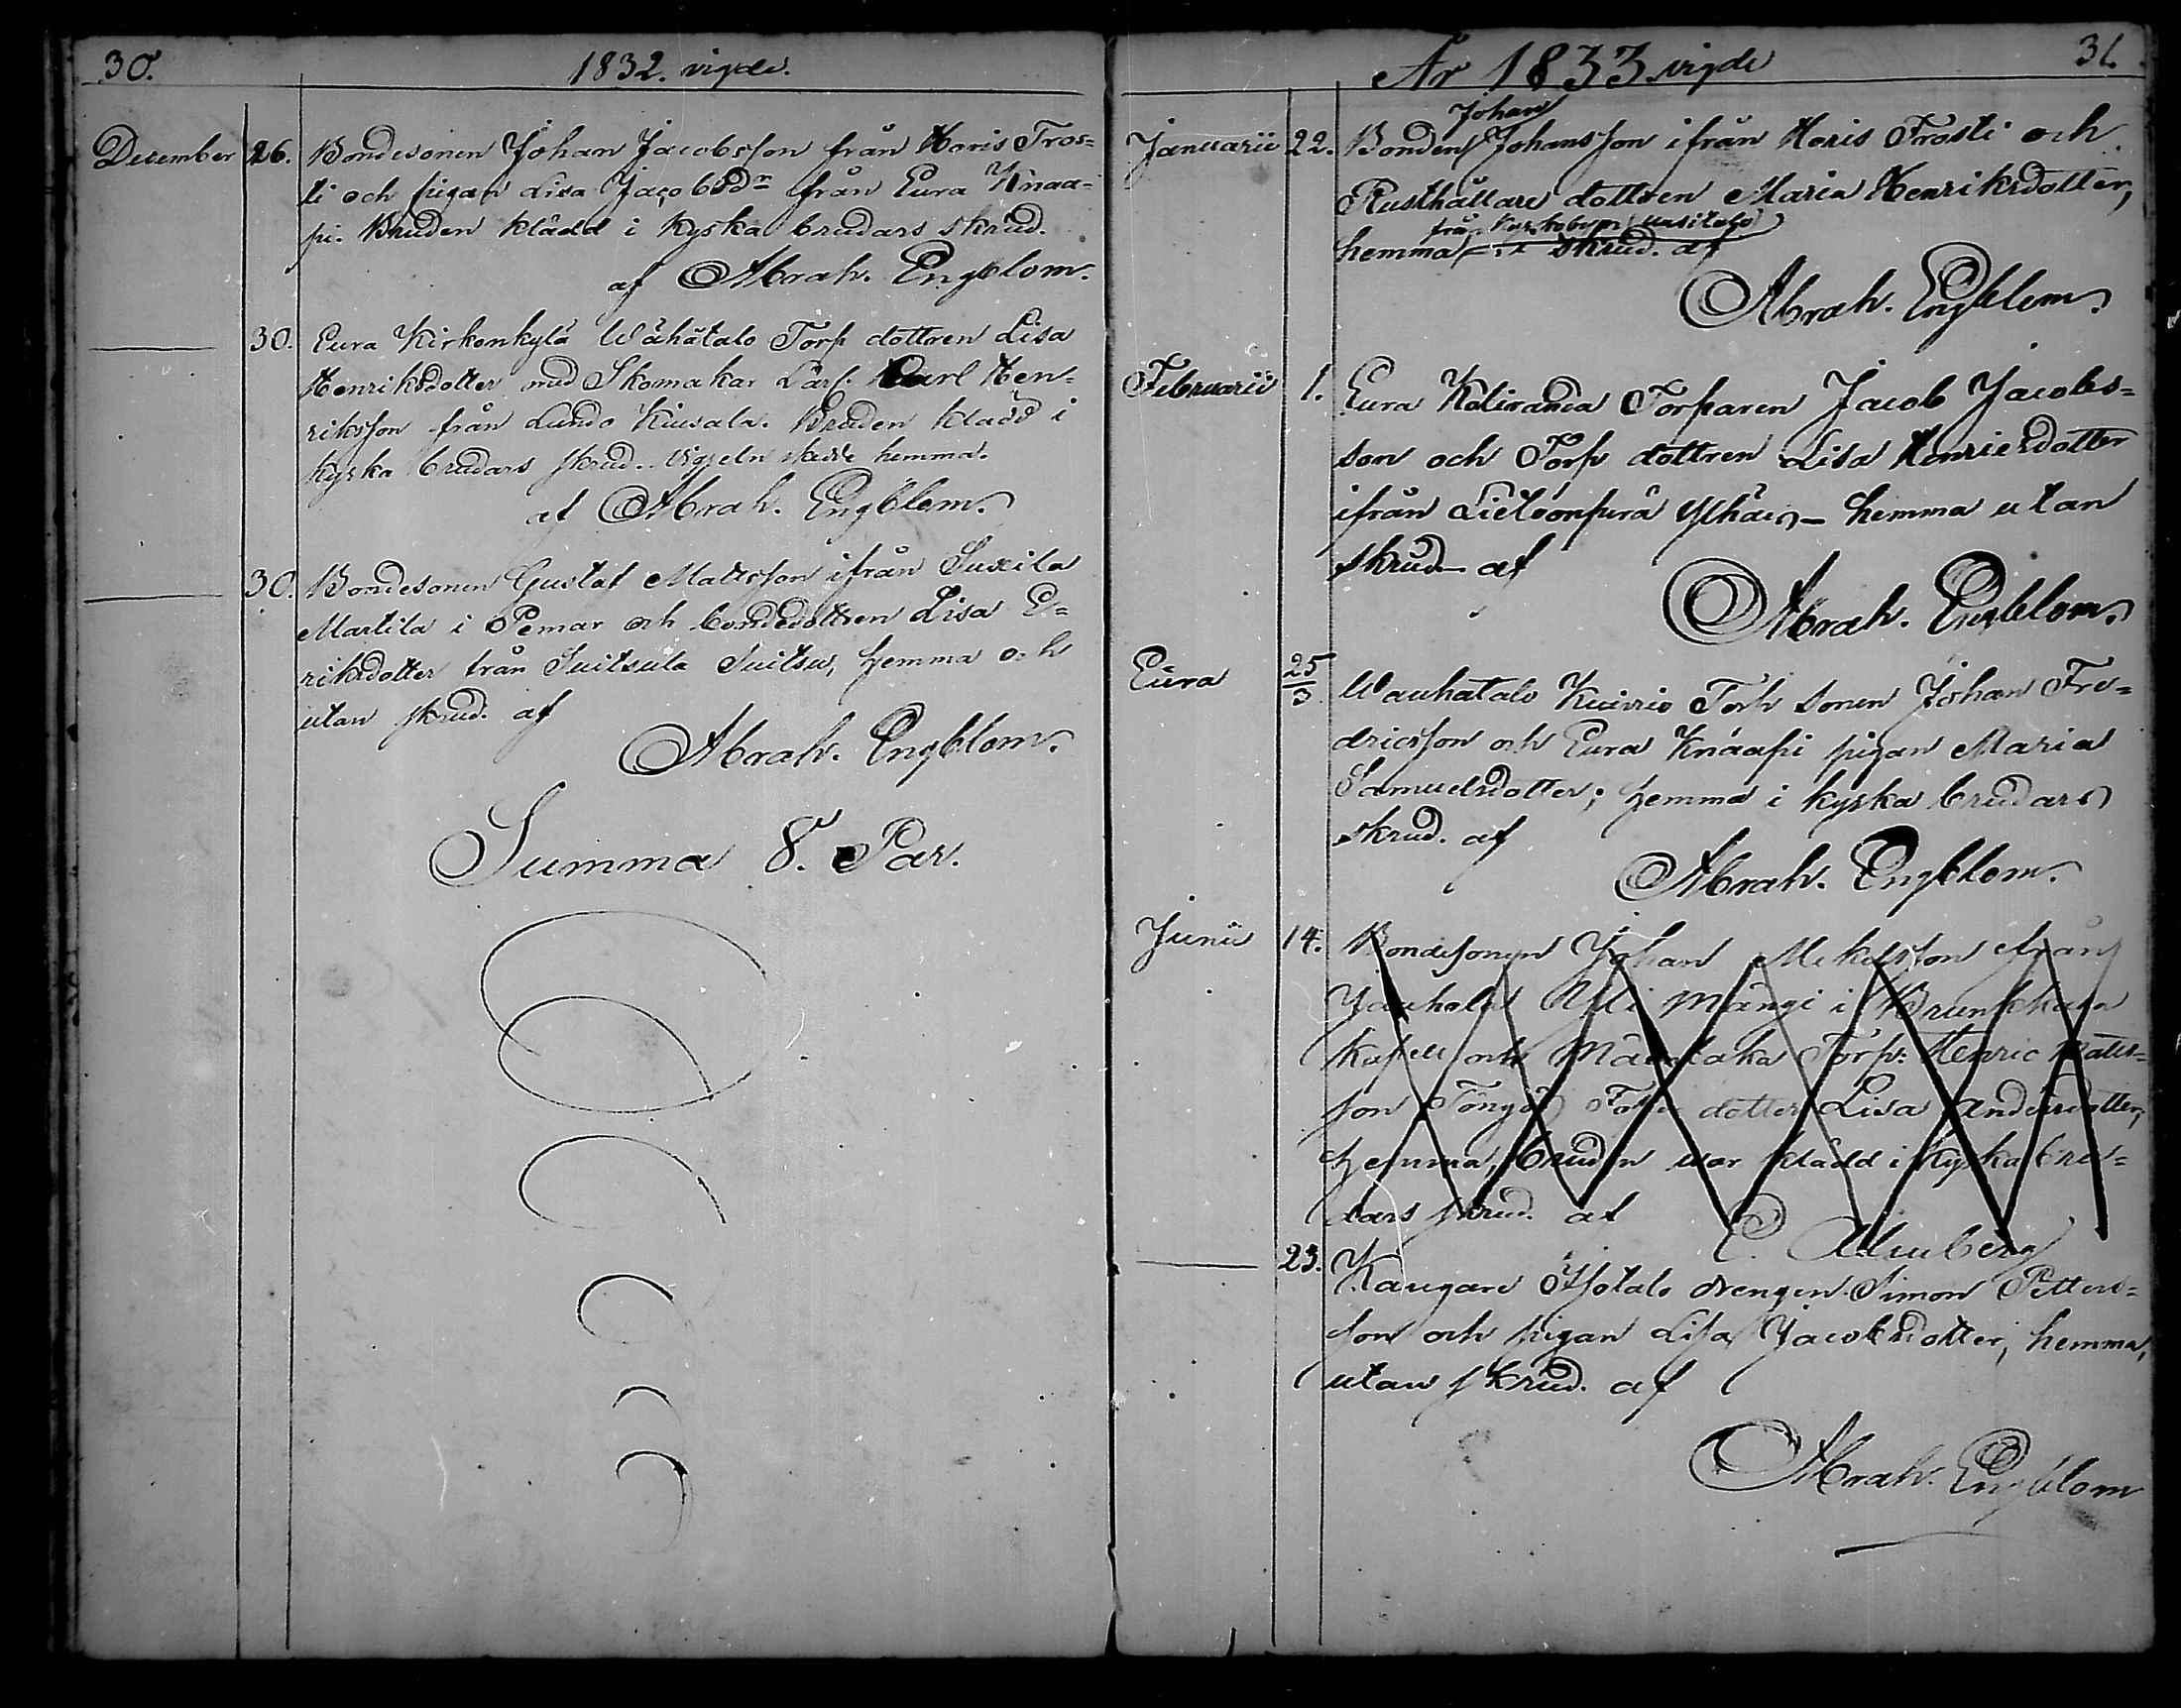 30.
1832. vigde.
December 26. Bondesonen Johan Jacobsson från Horis Tros=
ti och pigan Lisa Jacobsdr från Eura Knaa=
pi. Bruden klädd i kyska brudars skrud.
af Abrah. Engblom.
30. Eura Kirkonkylä Wähätalo Torp dottren Lisa
Henriksdotter med Skomakar Lärl. Carl Hen=
riksson från Lundo Kiusala. Bruden klädd i
kyska brudars skrud. vigseln skedde hemma.
af Abrah. Engblom.
30. Bondesonen Gustaf Matsson ifrån Suxila
Martila i Pemar och bondedottren Lisa E=
riksdotter från Suitsula Suitsu, hemma och
utan skrud. af
Abrah. Engblom.
Summa 8. Par.
31.
År 1833 vigde
Johan
Januarii 22. Bonden Johansson ifrån Horis Trosti och
Rusthållare dottren Maria Henriksdotter,
från Kyrkobyn Uusitalo
hemma skrud. af
Abrah. Engblom.
Februarii 1. Eura Torparen Jacob Jacobs=
son och Torp dottren Lisa Henricsdotter
ifrån hemma utan
skrud af
Abrah. Engblom.
Eura 25/3 Torp sonen Johan Fre=
dricsson och Eura Knaapi pigan Maria
Samuelsdotter; hemma i kyska brudars
skrud. af
Abrah. Engblom.
Junii 14. Bondesonen Johan ifrån
i
Kapell och Torp: Henric Matts=
son dotter Lisa Andersdotter,
hemma, bruden war klädd i kyska bru=
dars skrud. af
23. drengen Simon Petters=
son och pigan Lisa Jacobsdotter, hemma,
utan skrud. af
Abrah. Engblom